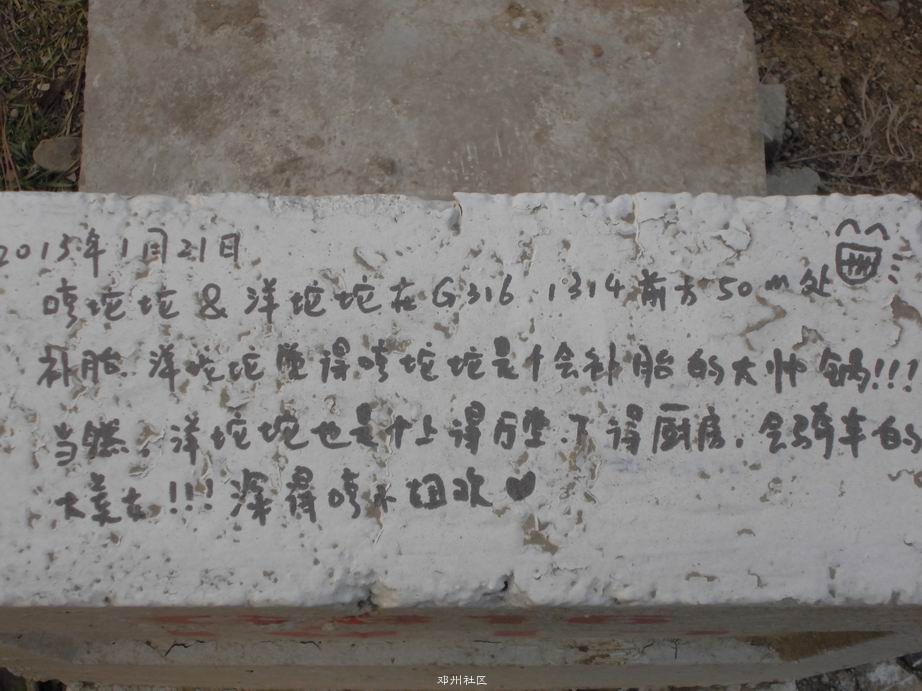 2015年1月21日
坨坨 & 洋坨坨在G316 1314前方50m处
补胎. 洋坨坨觉得坨坨是个会补胎的大帅锅!!!
当然,洋坨坨也是个上得厅堂.下得厨房.会骑车的
大美女!!! 深得欢♥
邓州社区